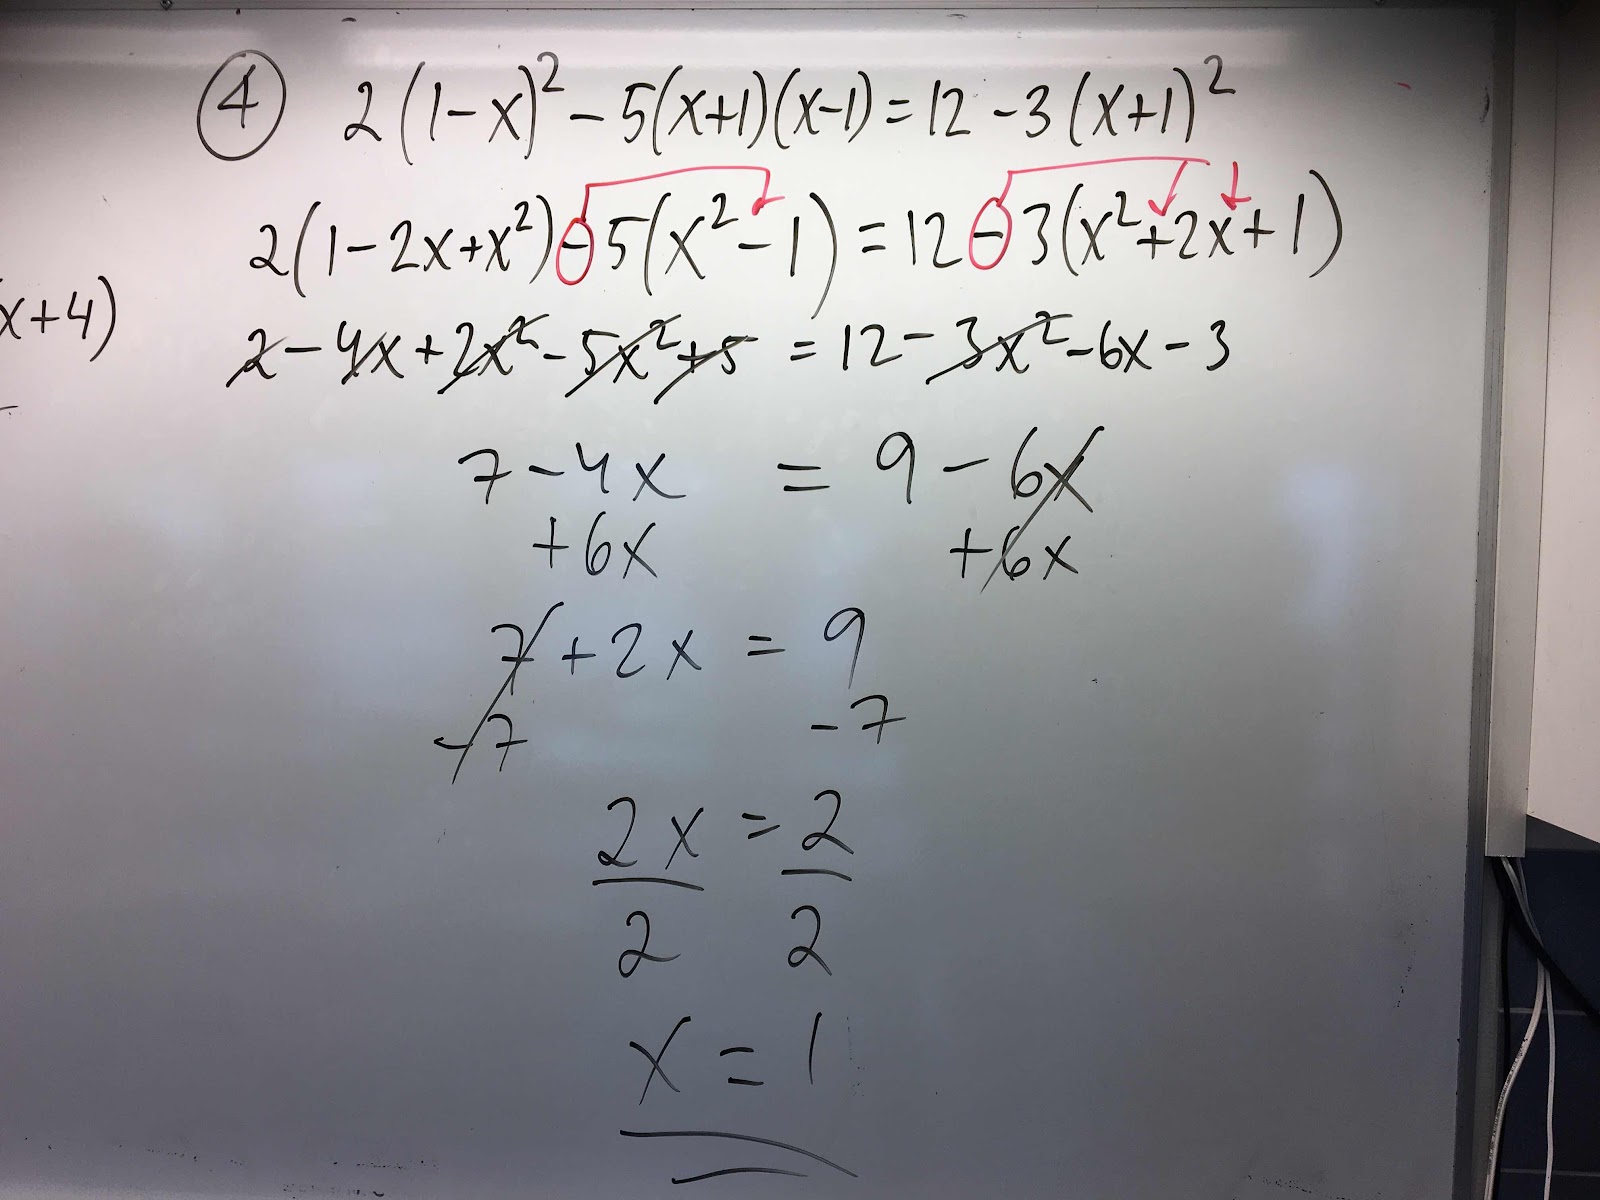 ④ 2(1-x)² - 5(x+1)(x-1) = 12 - 3(x+1)²
2(1-2x+x²) - 5(x²-1) = 12 - 3(x²+2x+1)
x+4)
2 - 4x + 2x² - 5x² + 5 = 12 - 3x² - 6x - 3
7 - 4x = 9 - 6x
+6x +6x
7 + 2x = 9
-7 -7
2x = 2
2 2
x = 1